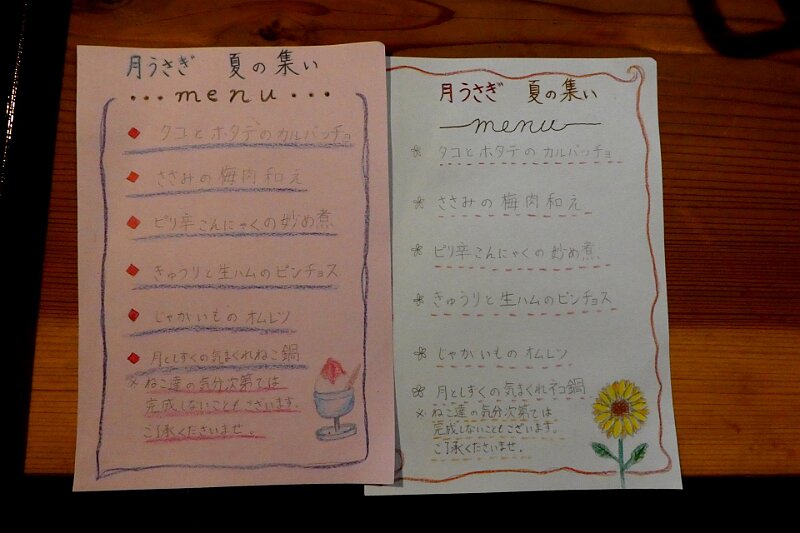 月うさぎ 夏の集い
...menu...
タコとホタテのカルパッチョ
ささみの梅肉和え
ピリ辛こんにゃくの炒め煮
きゅうりと生ハムのピンチョス
じゃがいものオムレツ
月としずくの気まぐれねこ鍋
※ねこ達の気分次第では
完成しないこともございます。
ご了承くださいませ。
月うさぎ 夏の集い
menu
タコとホタテのカルパッチョ
ささみの梅肉和え
ピリ辛こんにゃくの炒め煮
きゅうりと生ハムのピンチョス
じゃがいものオムレツ
月としずくの気まぐれネコ鍋
※ねこ達の気分次第では
完成しないこともございます。
ご了承くださいませ。